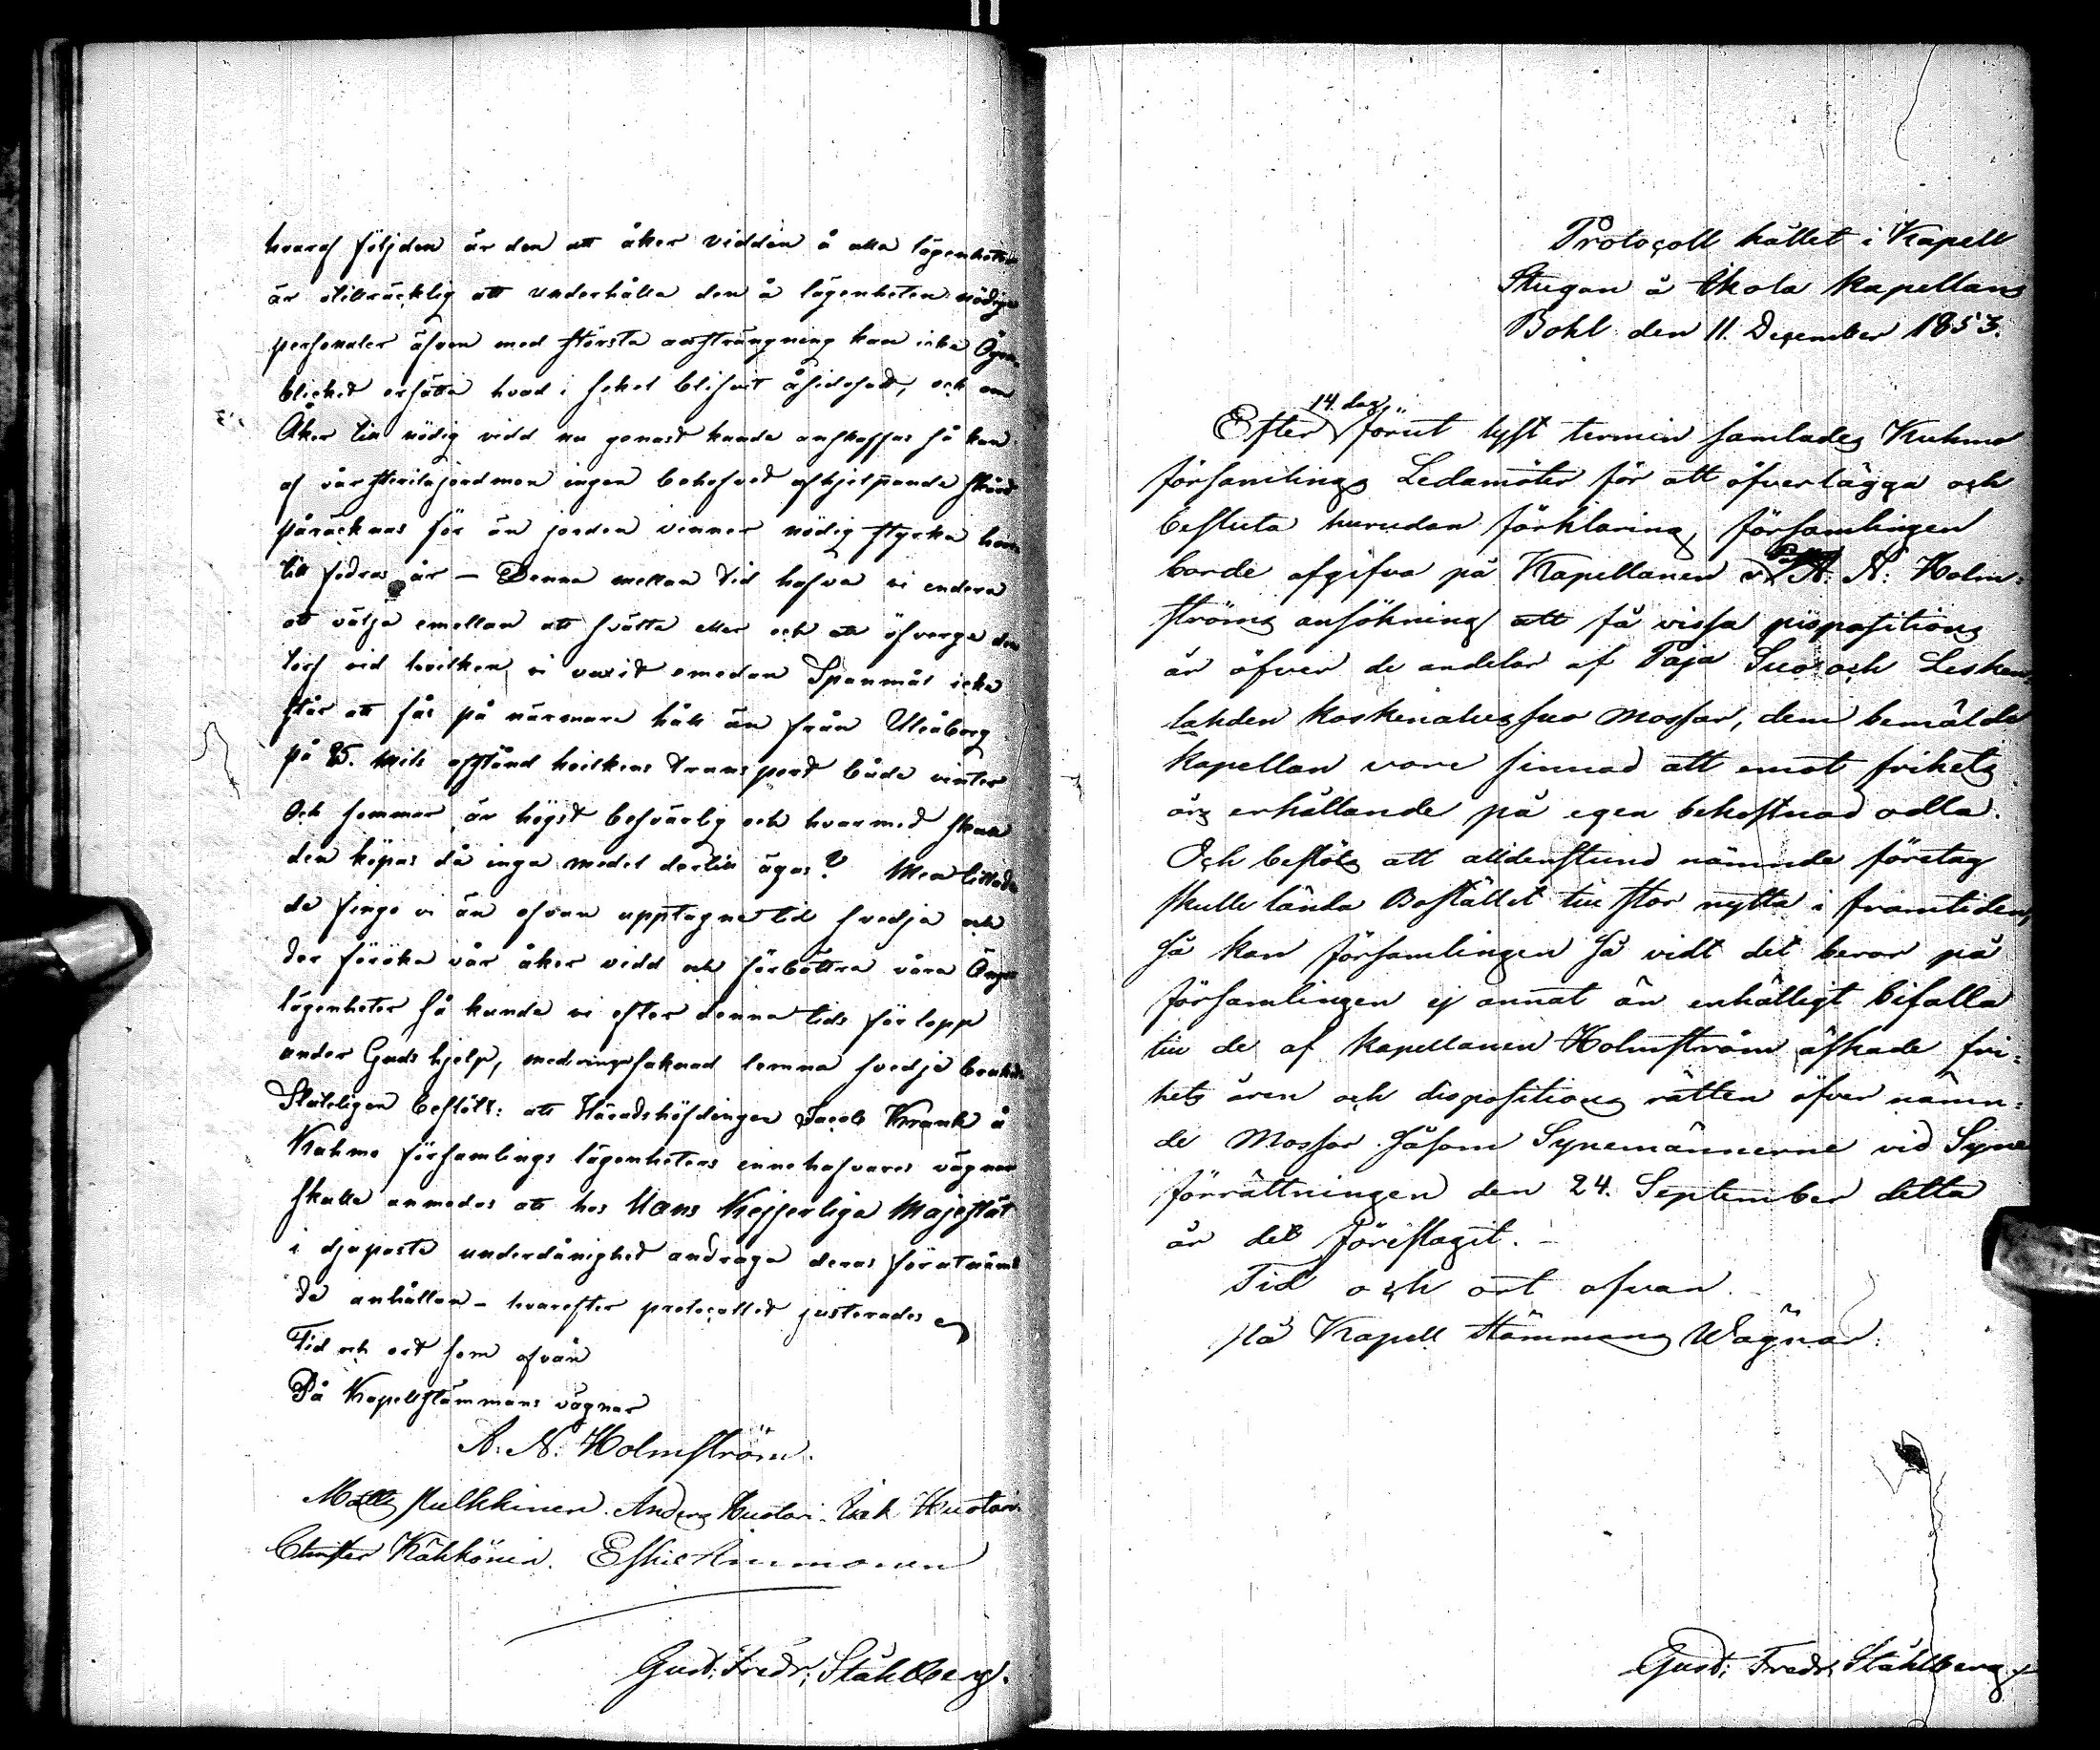 hvaraf följden är den att åker vidden å alla lägenheter
är otillräcklig att underhålla den å lägenheten nödiga
personaler äfven med största ansträngning kan icke Ögon-
blicket ersätta hvad i sekel blifvit åsidosatt, och om
Åker till nödig vidd nu genast kunde anskaffas så kan
af vår sterila jordmon ingen behofvet afhjelpande skörd
påräcknas för än jorden vinner nödig styrka
till fodras år — Denna mellan tid hafva vi endera
att välja emellan att svälta eller och att öfverge den
torf vid hvilken vi vaxit emedan Spanmål icke
står att fås på närmare håll än från Uleåborg
på 25. mils afstånd hvilkens transport både vinter
och sommar är högst besvärlig och hvarmed skall
den köpas då inga medel dertill ägas? Men tillade
de finge vi än ofvan upptagne tid svedja och
der föröka vår åker vidd och förbättra våra Ängs
lägenheter så kunde vi efter denna tids förlopp
under Guds hjelp, med ringa saknad lemna svedje bruket
Slutligen beslöts: att Häradshöfdingen Jacob Krank å
Kuhmo församlings lägenheters innehafvares vägnar
skulle anmodas att hos Hans Kejserliga Majestät
i djupaste underdånighet andraga deras förutnäm
de anhållan — hvarefter protocollet justerades
Tid och ort som ofvan
På Kapellstämmans vägnar
A. N. Holmström.
Matts Pulkkinen. Anders Huotari. Isak Huotari.
Christer Kähkönen. Eskil Ammonen
Gust: Fredr: Ståhlberg.
Protocoll hållet i Kapell
Stugan å Ekola Kapellans
Bohl den 11. December 1853.
14. dag
Efter förut lyst termin samlades Kuhmo
församlings Ledamöter för att öfverlägga och
besluta hurudan förklaring församlingen
borde afgifva på Kapellanen A: N: Holm:
ströms ansökning att få vissa dispositions
år öfver de andelar af Paja Suo och Lesken
lahden koskenalus suo mossar, dem bemälde
Kapellan vore sinnad att emot frihets
års erhållande på egen bekostnad odla.
Och beslöts att alldenstund nämnde företag
skulle lända Bostället till stor nytta i framtiden,
Så kan församlingen så vidt det beror på
församlingen ej annat än enhälligt bifalla
till de af Kapellanen Holmström äskade fri:
hets åren och dispositions rätten öfver nämn:
de Mossar såsom Synemännerne vid Syne
förrättningen den 24. September detta
år det föreslagit. —
Tid och ort ofvan.
På Kapell Stämmans Wägnar:
Gust: Fredr: Ståhlberg